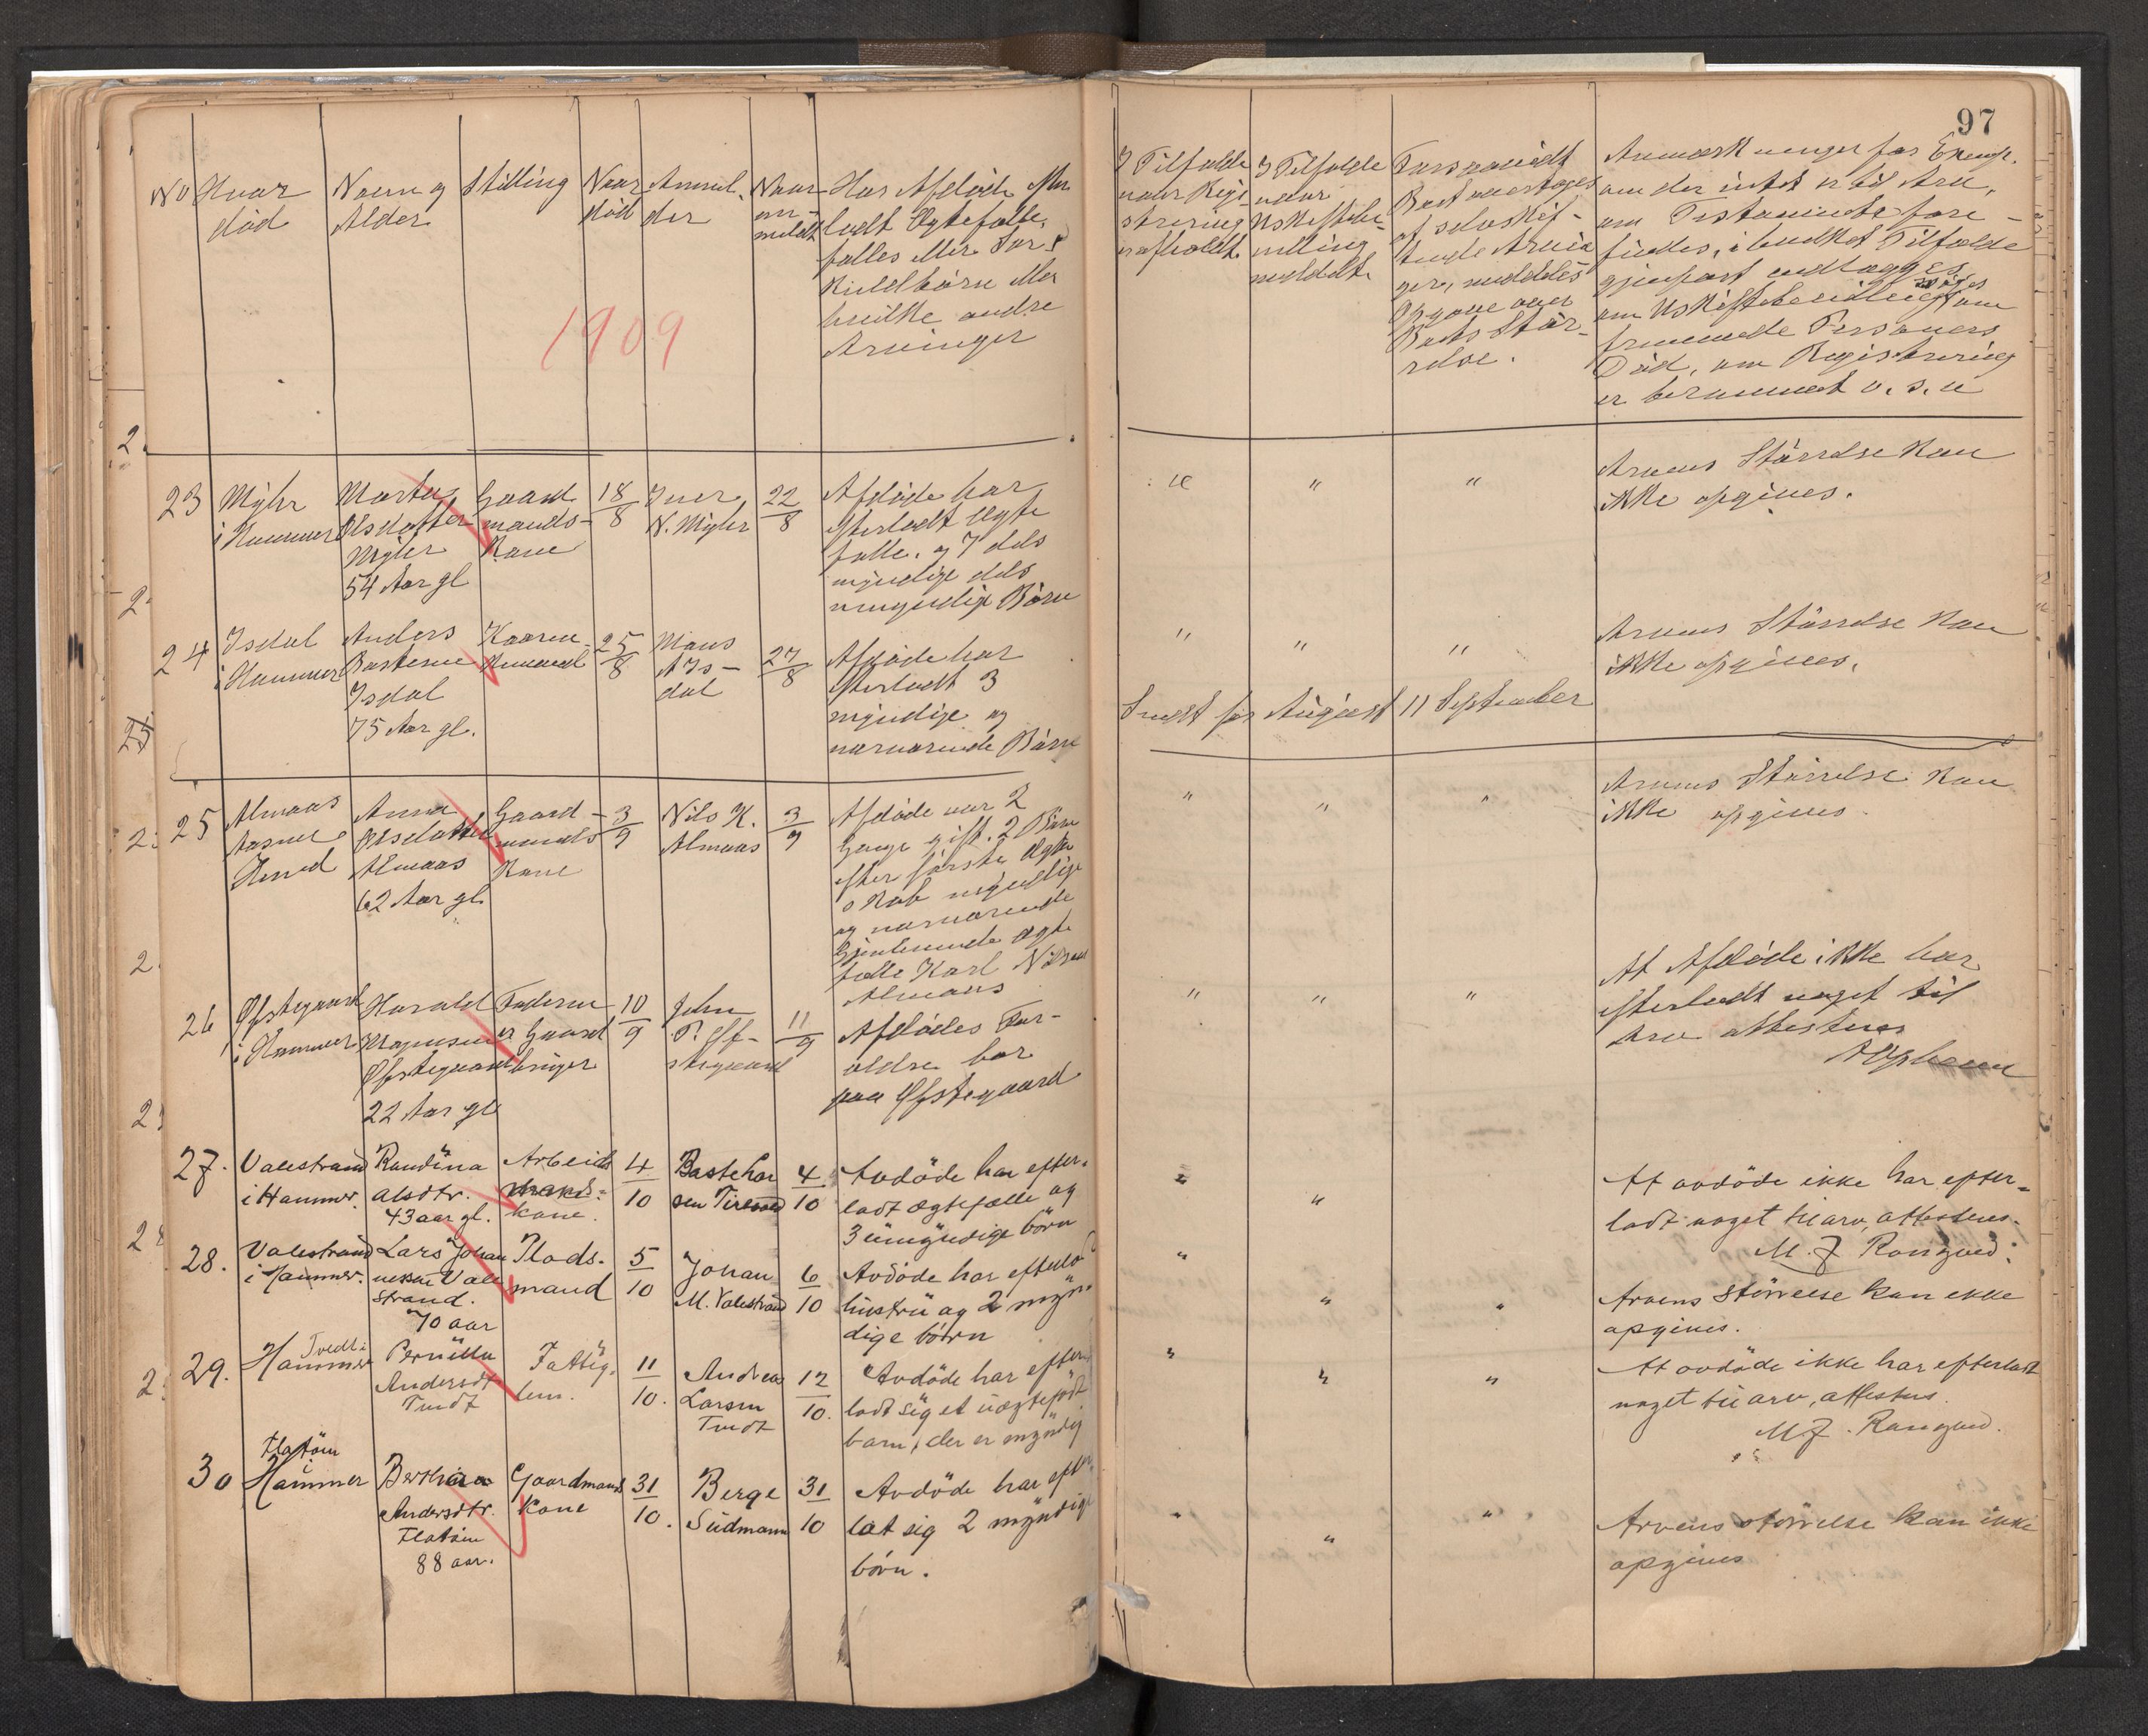 97
No
Hvor
død
Navn og
Alder
Stilling
Naar
død
Anmel-
der
Naar
an-
meldt
Har Afdøde efter
ladt Ægtefælle,
fælles eller Sær-
kuldbørn eller
hvilke andre
Arvinger
1909
I Tilfælde
naar Regi-
strering
er afholdt
I Tilfælde
naar
Uskiftebe-
villing
meddelt
Forsaavidt
Boet overtages
af selvskif-
tende Arvin
ger, meddeles
Opgave over
Boets Stør-
relse.
Anmærkninger for Exemp.
om der intet er til Arv,
om Testamente fore-
findes, i hvilket Tilfælde
gjenpart vedlægges
om Uskiftebevilling søges om
fremmede Personers
Død, om Registrering
er berammet o. s. v
23
Mykr
i Hammer
Marta
Olsdatter
Mykr
54 Aar gl
Gaard
mands-
Kone
18/8
Iver
N. Mykr
22/8
Afdøde har
efterladt Ægte
fælle. og 7 dels
myndige dels
umyndige Børn
"
"
"
Arvens Størrelse kan
ikke opgives.
24
Isdal
i Hammer
Anders
Bastesen
Isdal
75 Aar gl.
Kaarm
25/8
Mons
A Is-
dal
27/8
Afdøde har
efterladt 3
myndige og
nærværende Børn
"
"
"
Arvens Størrelse kan
ikke opgives.
Sendt for August 11 September
25
Almaas
Anna
Olsdatter
Almaas
62 Aar gl.
Gaard-
mands
Kone
3/9
Nils K.
Almaas
3/9
Afdøde var 2
Gange gift. 2 Børn
efter første Ægte
skab myndige
og nærværende
Gjenlevende Ægte
fælle Karl Nilsen
Almaas
"
"
"
Arvens Størrelse kan
ikke opgives
26
Øfstegaard
i Hammer
Harald
Mognsen
Øfstegaard
22 Aar gl
Faderen
er Gaard
bruger
10/9
John
P. Øff-
stegaard
11/9
Afdødes For-
ældre bor
paa Øfstegaard
"
"
"
At Afdøde ikke har
efterladt noget til
Arv attesteres
27.
Valestrand
i Hammer.
Randina
Olsdtr.
43 aar gl.
Arbeids
mands-
kone.
4/10
4/10
Avdøde har efter-
ladt ægtefælle og
3 umyndige børn
"
"
At avdøde ikke har efter-
ladt noget til arv, attesteres.
M. J Rongved.
28.
Valestrand
i Hammer.
Lars Johan
nessen Vale
strand.
70 aar
Plads-
mand
5/10
Johan
M. Valestrand
6/10
Avdøde har efterlad
hustru og 2 myn-
dige børn
"
"
"
Arvens størrelse kan ikke
opgives.
29.
Tvedt i
Hammer
Pernilla
Andersdt
Tvedt
Fattig-
lem.
11/10.
Andreas
Larsen
Tvedt
12/10.
Avdøde har efter
ladt sig et uægtefødt
barn, der er myndig
"
"
"
At avdøde ikke har efterladt
noget til arv, attesteres.
M J. Rongved.
30
Flatøen
i
Hammer
Berthina
Andersdtr.
Flatøen
88 aar.
Gaardmands
kone
31/10.
Berge
Sudmann
31/10
Avdøde har efter
lat sig 2 myndige
børn.
"
"
"
Arvens størrelse kan ikke
opgives